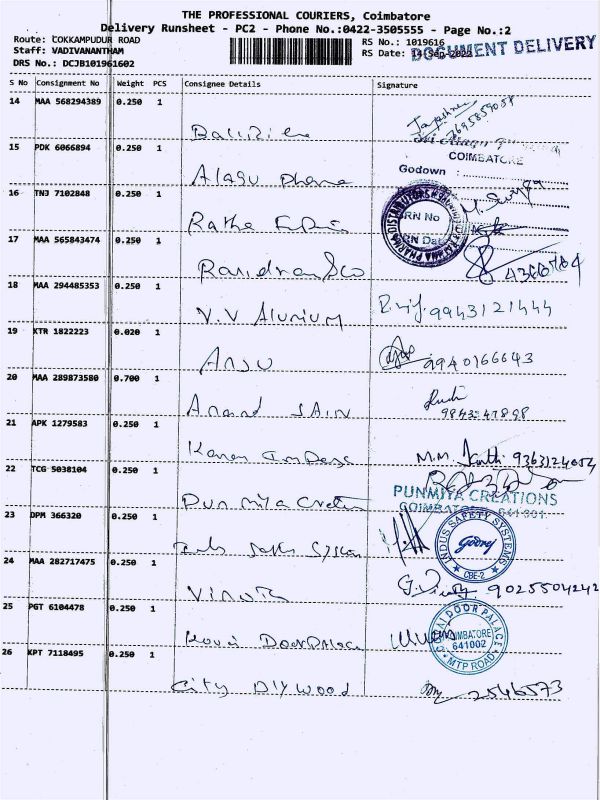 THE PROFESSIONAL COURIERS, Coimbatore
Delivery Runsheet - PC2 - Phone No.:0422-3505555 - Page No.:2
Route: COKKAMPUDUR ROAD
Staff: VADIVANANTHAM
DRS No.: DCJB101961602
RS No.: 1019616
RS Date: 14-Sep-2022
DOCUMENT DELIVERY
S No Consignment No Weight PCS Consignee Details Signature
14 MAA 568294389 0.250 1
COIMBATORE
15 PDK 6066894 0.250 1 Alagu phone
Godown :
16 TNJ 7102848 0.250 1 Ratha
RN No
RN Date
17 MAA 565843474 0.250 1
18 MAA 294485353 0.250 1 V.V Alunium 9943121444
19 KTR 1822223 0.020 1 Ansu 9940166643
20 MAA 289873580 0.700 1 Anand SAIN
21 APK 1279583 0.250 1 M.M. 9363124054
22 TCG 5038104 0.250 1 Punmiya
PUNMIYA CREATIONS
COIMBATORE 641001
23 DPM 366320 0.250 1
INDUS SAFETY SYSTEMS
Godrej
CBE-2
24 MAA 282717475 0.250 1 9025504242
25 PGT 6104478 0.250 1 DoorPalace
DOOR PALACE
COIMBATORE
641002
MTP ROAD
26 KPT 7118495 0.250 1 City Plywood 2546573